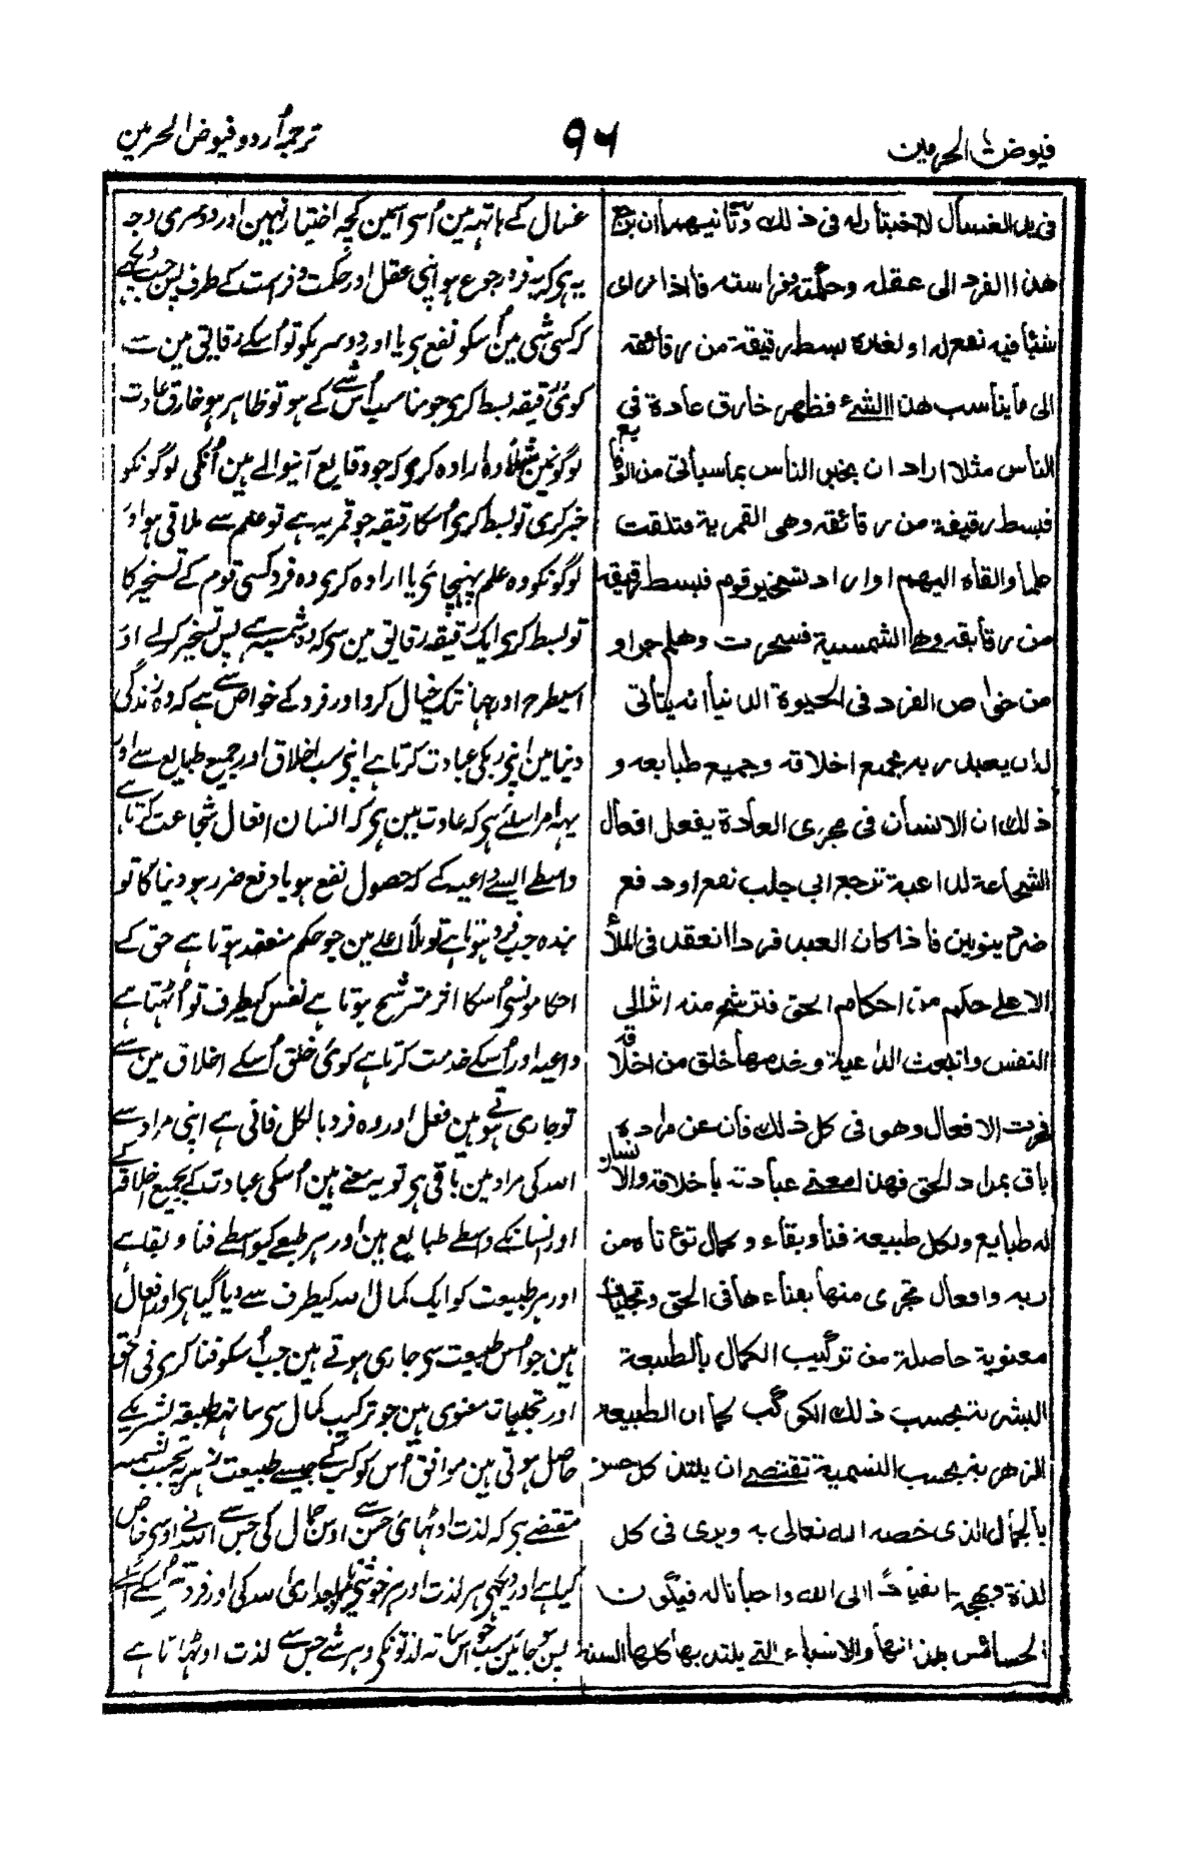 فیوض الحرمین
۹۶
ترجمہ اُردو فیوض الحرمین
فی ید الغسال لا اختیار له فی ذلك وثانیهما ان یرجع
هذا الفرد الی عقله وحکمته وفراسته فاذا رای
شیئا فیه نفع له او لغیره بسط رقیقة من رقائقه
الی ما یناسب هذا الشیٔ فظهر خارق عادة فی
الناس مثلا اراد ان یخبر الناس بما سیاتی من الوقایع
فبسط رقیقة من رقائقه وهی القمریة فتلقت
علما والقاه الیهم او اراد تسخیر قوم فبسط رقیقة
من رقایقه وهی الشمسیة فسخرت وهلم جرا و
من خواص الفرد فی الحیوة الدنیا انه یتأتی
لان یعبد ربه بجمیع اخلاقه وجمیع طبایعه و
ذلك ان الانسان فی مجری العادة یفعل افعال
الشجاعة لداعیة ترجع الی جلب نفع او دفع
ضرر دنیویین فاذا کان العبد فردا انعقد فی الملأ
الاعلی حکم من احکام الحق فترشح منه اثر الی
النفس وانبعث الداعیة وخدمها خلق من اخلاقه
فجرت الافعال وهو فی کل ذلك فان عن مراده
باق بمراد الحق فهذا معنی عبادته باخلاقه والانسان
له طبایع ولکل طبیعة فناء وبقاء وکمال تؤتاه من
ربه وافعال تجری منها بعد فناءها فی الحق وتجلیات
معنویة حاصلة من ترکیب الکمال بالطبیعة
البشریة بحسب ذلك الکوکب کما ان الطبیعة
الزهریة بحسب النسمیة تقتضی ان یلتذ کل حسن
بالجمال الذی خصه الله تعالی به ویری فی کل
لذة وبهجة انقیادًا الی الله واخباتا له فیکون
الحسائس بلذاتها والاشیاء التی یلتذ بها کلها السنة
غسال کے ہاتھ مین اُسی اسمین کچھ اختیار نہین اور دوسری وجہ
یہ ہی کہ یہ فرد رجوع ہو اپنی عقل اور حکمت و فراست کے طرف پس جب دیکھے
کہ کسی شی مین اُسکو نفع ہی یا اور دوسریکو تو اُسکے رقایق مین سے
کوئی رقیقہ بسط کری جو مناسب اُس شے کے ہو تو ظاہر ہو خارق عادت
لوگونمین مثلاً وہ ارادہ کری کہ جو وقایع آنیوالے ہین اُنکی لوگونکو
خبر کری تو بسط کری اُسکا رقیقہ جو قمریہ ہے تو علم سے ملاقی ہو اور
لوگونکو وہ علم پہنچائی یا ارادہ کری وہ فرد کسی قوم کے تسخیر کا
تو بسط کری ایک رقیقہ رقایق مین سی کہ وہ شمسیہ ہے پس تسخیر کرلے اور
اسیطرح اور جہانتک خیال کرو اور فرد کے خواص سے ہے کہ وہ زندگی
دنیا مین اپنی ربکی عبادت کرتا ہے اپنی سب اخلاق اور جمیع طبایع سے اور
یہہ امر اسلئے ہی کہ عادت یہین ہی کہ انسان افعال شجاعت کرتا ہے
واسطے ایسے داعیہ کے کہ حصول نفع ہو یا دفع ضرر ہو دنیا کا تو
بندہ جب فرد ہوتا ہے تو ملأ اعلے مین جو حکم منعقد ہوتا ہے حق کے
احکامونسی اُسکا اثر مترشح ہوتا ہے نفس کیطرف تو اُٹھتا ہے
داعیہ اور اُسکے خدمت کرتا ہے کوئی خلق اُسکے اخلاق مین سے
تو جاری ہوتے ہین فعل اور وہ فرد بالکل فانی ہے اپنی مراد سے
اللہ کی مراد مین باقی ہی تو یہ معنے ہین اُسکی عبادت کے بجمیع اخلاقہ کے
اور انسانکے واسطے طبایع ہین اور ہر طبع کیواسطے فنا و بقا ہے
اور ہر طبیعت کو ایک کمال اللہ کیطرف سے دیا گیا ہی اور افعال
ہین جو اُس طبیعت سی جاری ہوتے ہین جب اُسکو فنا کری فی الحق
اور تجلیات معنوی ہین جو ترکیب کمال سی ساتھہ طبیعت بشریہ کے
حاصل ہوتی ہین موافق اُس کوکب کے جیسے طبیعت زہریہ بحسب نسمیہ
مقتضے ہی کہ لذت اوٹھائی حسن سے اوس جمال کی جس سے اللہ نے اوسی خاص
کیا ہے اور دیکھی ہر لذت اور ہر خوشی مین فرمانبرداری اللہ کی اور فروتنی اُسکے آگے
پس ہو جائین سب حواس ساتہ لذتونکی وہر شے جس سے لذت اوٹہاتا ہے